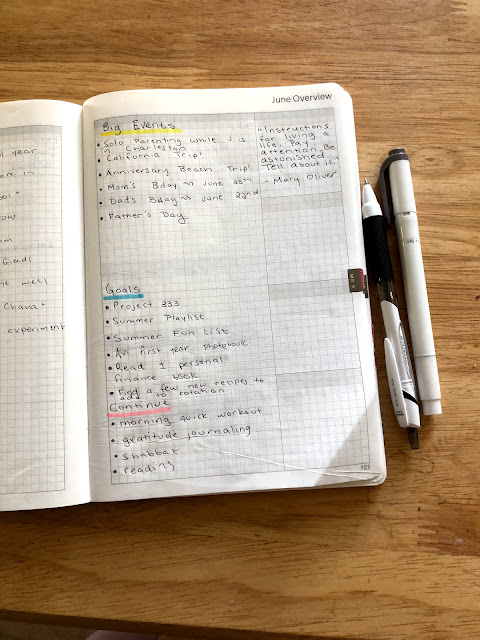 l year..
ore in
ool+
ow
m
friends
ge well
Chava+
experiment
June Overview
Big Events
• Solo Parenting while J is
Charleston
• California Trip!
• Anniversary Beach Trip!
• Mom's Bday ~ June 25th
• Dad's Bday ~ June 22nd
• Father's Day
"Instructions
for living a
life. Pay
attention. Be
astonished.
Tell about it."
- Mary Oliver
Goals
• Project 333
• Summer Playlist
• Summer Fun List
• Avi first year photobook
• Read 1 personal
finance book
• Find a few new recipes to
add to rotation
Continue
• morning quick workout
• gratitude journaling
• shabbat
• reading
123